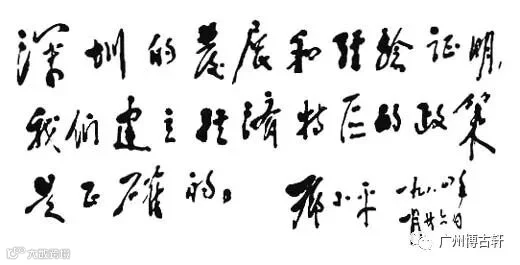 深圳的发展和经验证明，
我们建立经济特区的政策
是正确的。
邓小平
一九八四年
一月廿六日
广州博古轩
大威阁聊